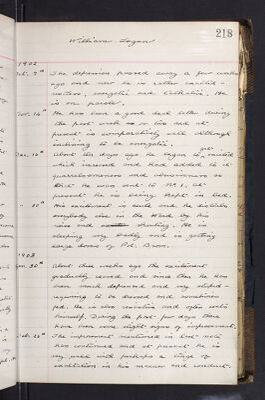 218
William Logan
1902
Oct. 3rd The depression passed away a few weeks
ago and now he is rather excited -
restless, energetic and talkative. He
is on parole.
Nov. 14th He has been a good deal better during
the past week or two and at
present is comparatively well although
inclining to be energetic.
Dec. 16th About ten days ago he began to get excited
which increased and had added to it
quarrelsomeness and obsceneness so
that he was sent to No. 1. At
present he is being kept in bed.
" 30th His excitement is acute and he disturbs
everybody else in the Ward by his
noise and shouting. He is
sleeping very badly and is getting
large doses of Pot. Brom.
1903
Jan. 30th About three weeks ago the excitement
gradually ceased and since then he has
been much depressed and very stupid -
requiring to be dressed and sometimes
fed. He is also resistive and often wets
himself. During the past few days there
have been very slight signs of improvement.
Feb. 26th The improvement mentioned in last note
has continued and at present he is
very well with perhaps a tinge of
exaltation in his manner and conduct.